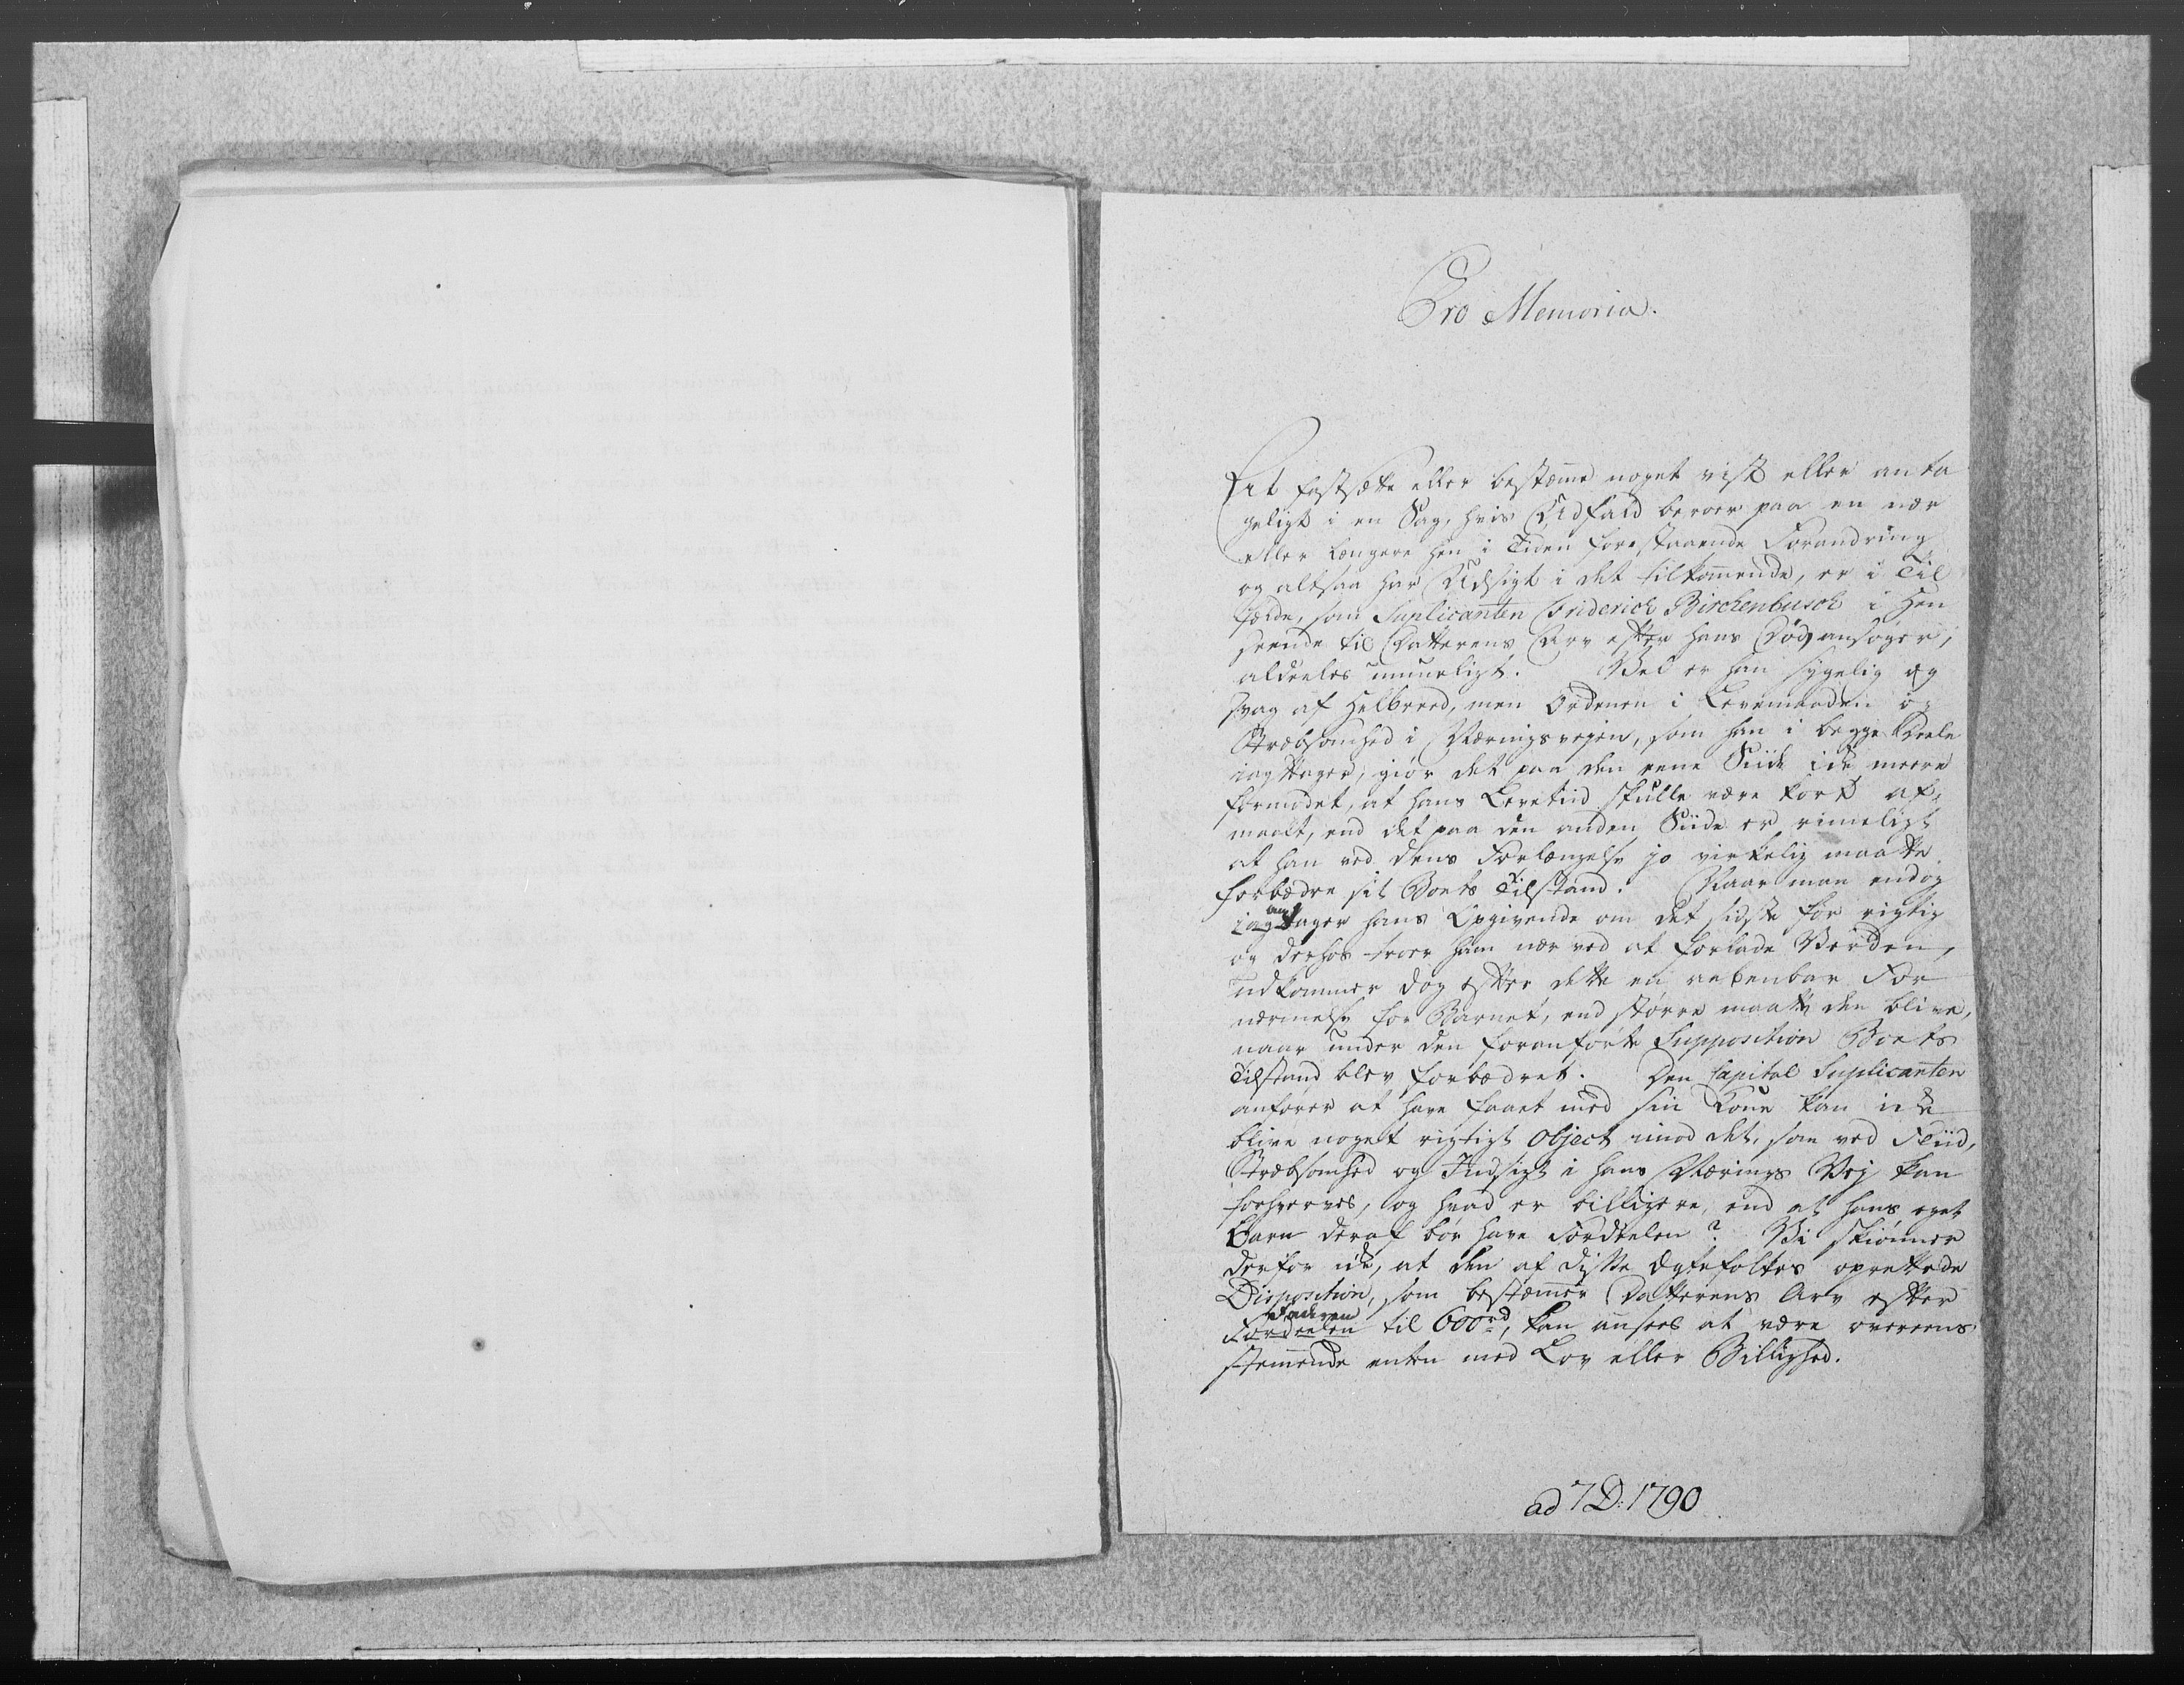 Pro Memoria.
At fastsætte eller bestæme noget vist eller anta
geligt i en Sag, hvis Udfald beroer paa en nær
eller længere hen i Tiden forestaaende Forandring
og altsaa har Udsigt i det tilkomende, er i Til
fælde, som Suplicanten Friderich Birchenbusch i Hen
seende til Datterens Arv efter hans Død ansøger,
aldeeles umueligt. Vel er han sygelig og
svag af Helbreed, men Ordenen i Levemaaden og
Stræbsomhed i Næringsvejen, som han i begge Deele
iagttager, giør det paa den eene Siide icke meere
formodet, at hans Levetiid skulle være kort af-
maalt, end det paa den anden Siide er rimeligt
at han ved dens Forlængelse jo virkelig maatte
forbedre sit Boets Tilstand. Naar man endog
an
iagtager hans Opgivende om det sidste for rigtig
og derhos troer ham nær ved at forlade Verden,
udkommer dog efter dette en aabenbar For
nærmelse for Barnet, end større maatte den blive,
naar under den foranførte Supposition Boets
Tilstand blev forbedret. Den Capital Suplicanten
anfører at have faaet med sin Kone kan icke
blive noget rigtigt Object imod det, som ved Fliid,
Stræbsomhed og Indsigt i hans Nærings Vej kan
forhverves, og hvad er billigere, end at hans eget
Barn deraf bør have Fordeelen? Vi skiønner
derfor icke, at den af disse Ægtefolkes oprettede
Disposition, som bestæmer Datterens Arv efter
Faderen
Fordeelen til 600rd, kan ansees at være overeens-
stemende enten med Lov eller Billighed.
ad 7 D: 1790